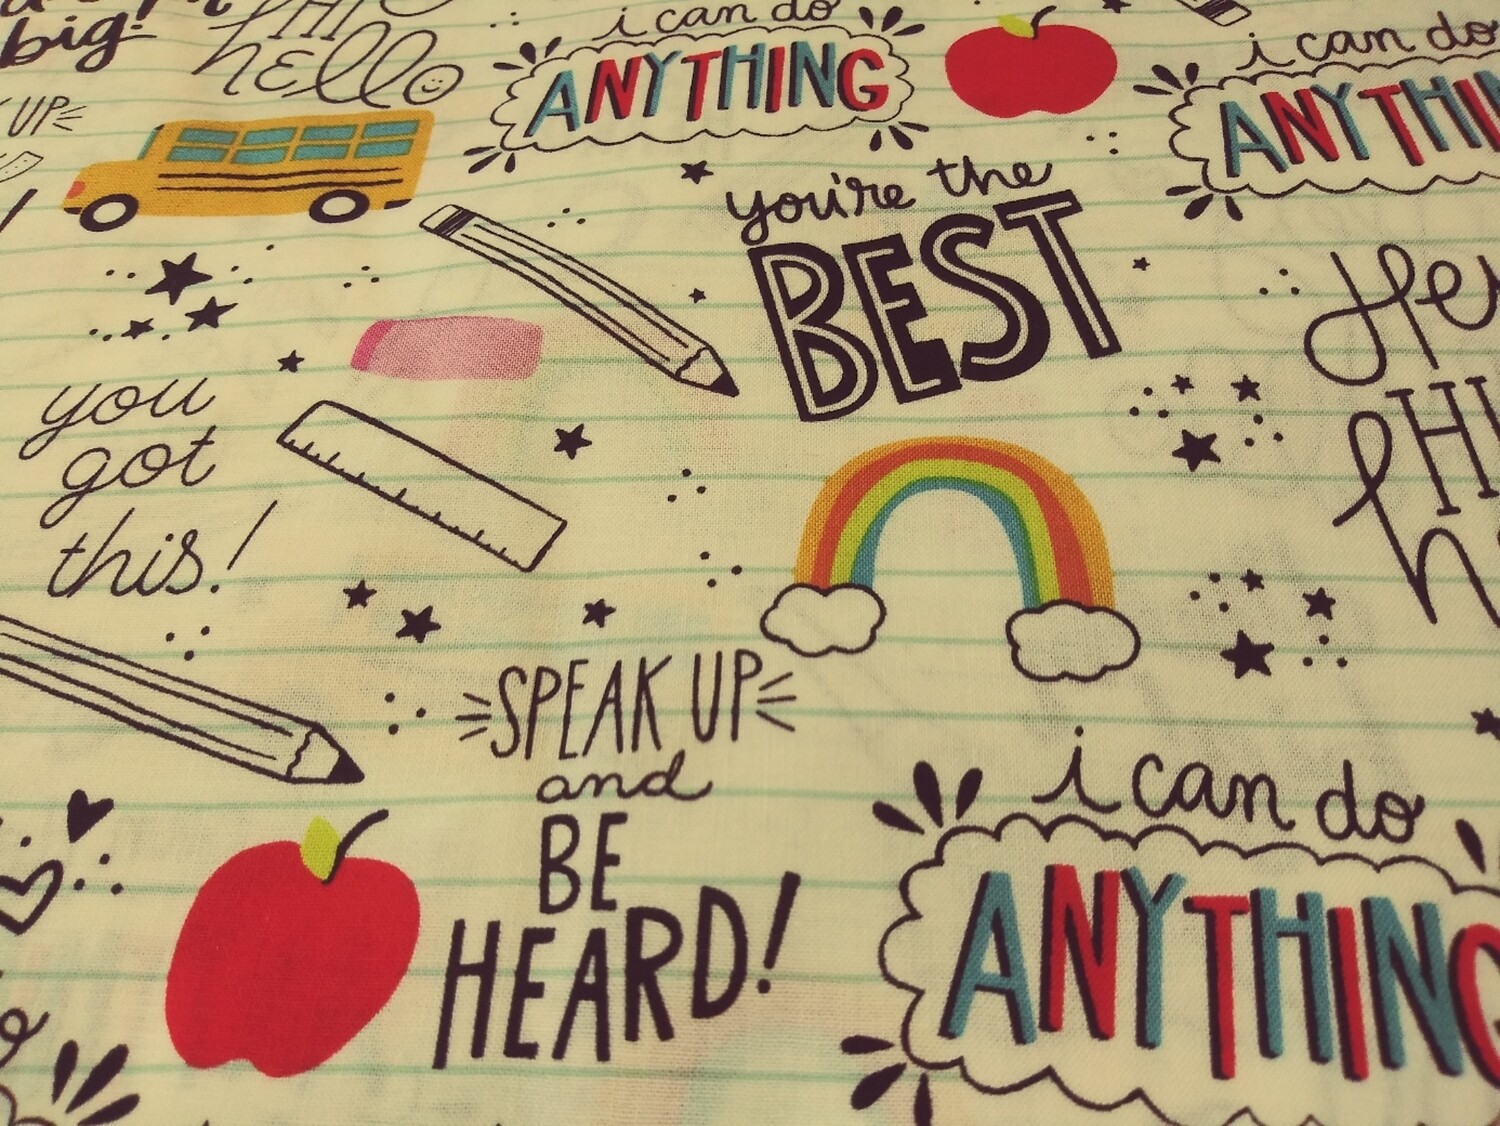 big!
HI
hello
UP
i can do
ANYTHING
i can do
you're the
BEST
you
got
this!
SPEAK UP
and
BE
HEARD!
i can do